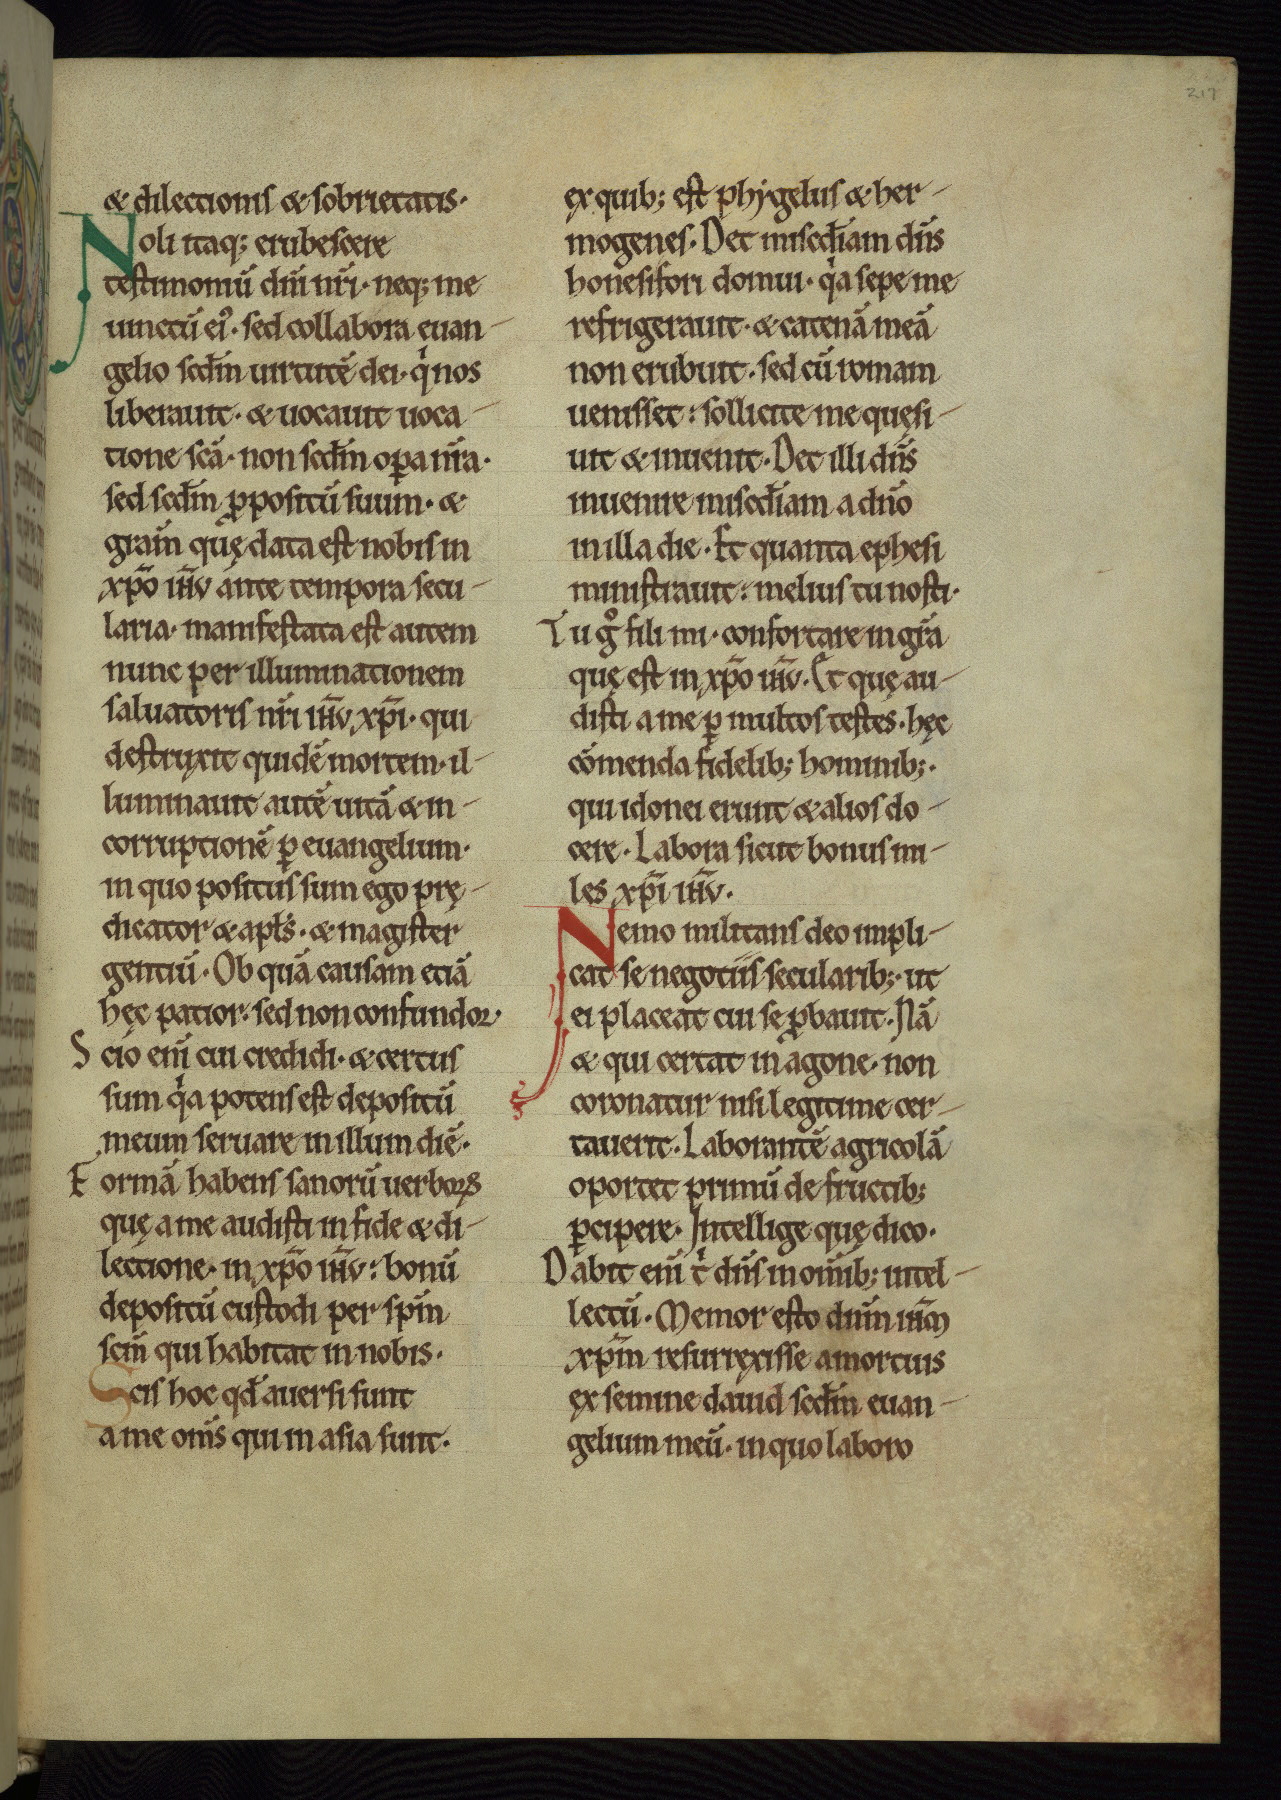 217
& dilectionis & sobrietatis·
Noli itaq; erubescere
testimoniū dn̄i nr̄i· neq; me
uinctū ei᷒· sed collabora euan-
gelio scdm̄ uirtutē dei· qⁱ nos
liberauit· & uocauit uoca-
tione scā· non scdm̄ oꝑa nr̄a·
sed scdm̄ ꝓpositū suum· &
gram̄ quę data est nobis in
xp̄o ih̄v ante tempora secu-
laria· manifestata est autem
nunc per illuminationem
saluatoris nr̄i ih̄v xp̄i· qui
destruxit quidē mortem· il-
luminauit autē uitā & in-
corruptionē ꝑ euangelium·
in quo positus sum ego prę-
dicator & apl̄s· & magister
gentiū· Ob quā causam etiā
hęc patior: sed non confundor·
Scio eni̅ cui credidi· & certus
sum qⁱa potens est depositū
meum seruare in illum diē·
Formā habens sanorū uerboꝝ
quę a me audisti in fide & di-
lectione· in xp̄o ih̄v: bonū
depositū custodi per sp̄m
scm̄ qui habitat in nobis·
Scis hoc qd̄ auersi sunt
a me om̄s qui in asia sunt·
ex quib; est phygelus & her-
mogenes· Det misc̄diam dn̄s
honesifori domui· qⁱa sepe me
refrigerauit· & catenā meā
non erubuit· sed cū romam
uenisset: sollicite me quęsi-
uit & inuenit· Det illi dn̄s
inuenire misc̄diam a dn̄o
in illa die· Et quanta ephesi
ministrauit: melius tu nosti·
Tu gͦ fili mi· confortare in gr̄a
quę est in xp̄o ih̄v· Et quę au-
disti a me ꝑ multos testes· hęc
cōmenda fidelib; hominib;·
qui idonei erunt & alios do-
cere· Labora sicut bonus mi-
les xp̄i ih̄v·
Nemo militans deo impli-
cat se negotiis secularib;· ut
ei placeat cui se ꝓbauit· Nā
& qui certat in agone· non
coronatur nisi legitime cer-
tauerit· Laborantē agricolā
oportet primū de fructib;
ꝑcipere· Intellige quę dico·
Dabit eni̅ tⁱ dn̄s in om̄ib; intel-
lectū· Memor esto dn̄m ih̄m
xp̄m resurrexisse a mortuis
ex semine dauid scdm̄ euan-
gelium meū· in quo laboro